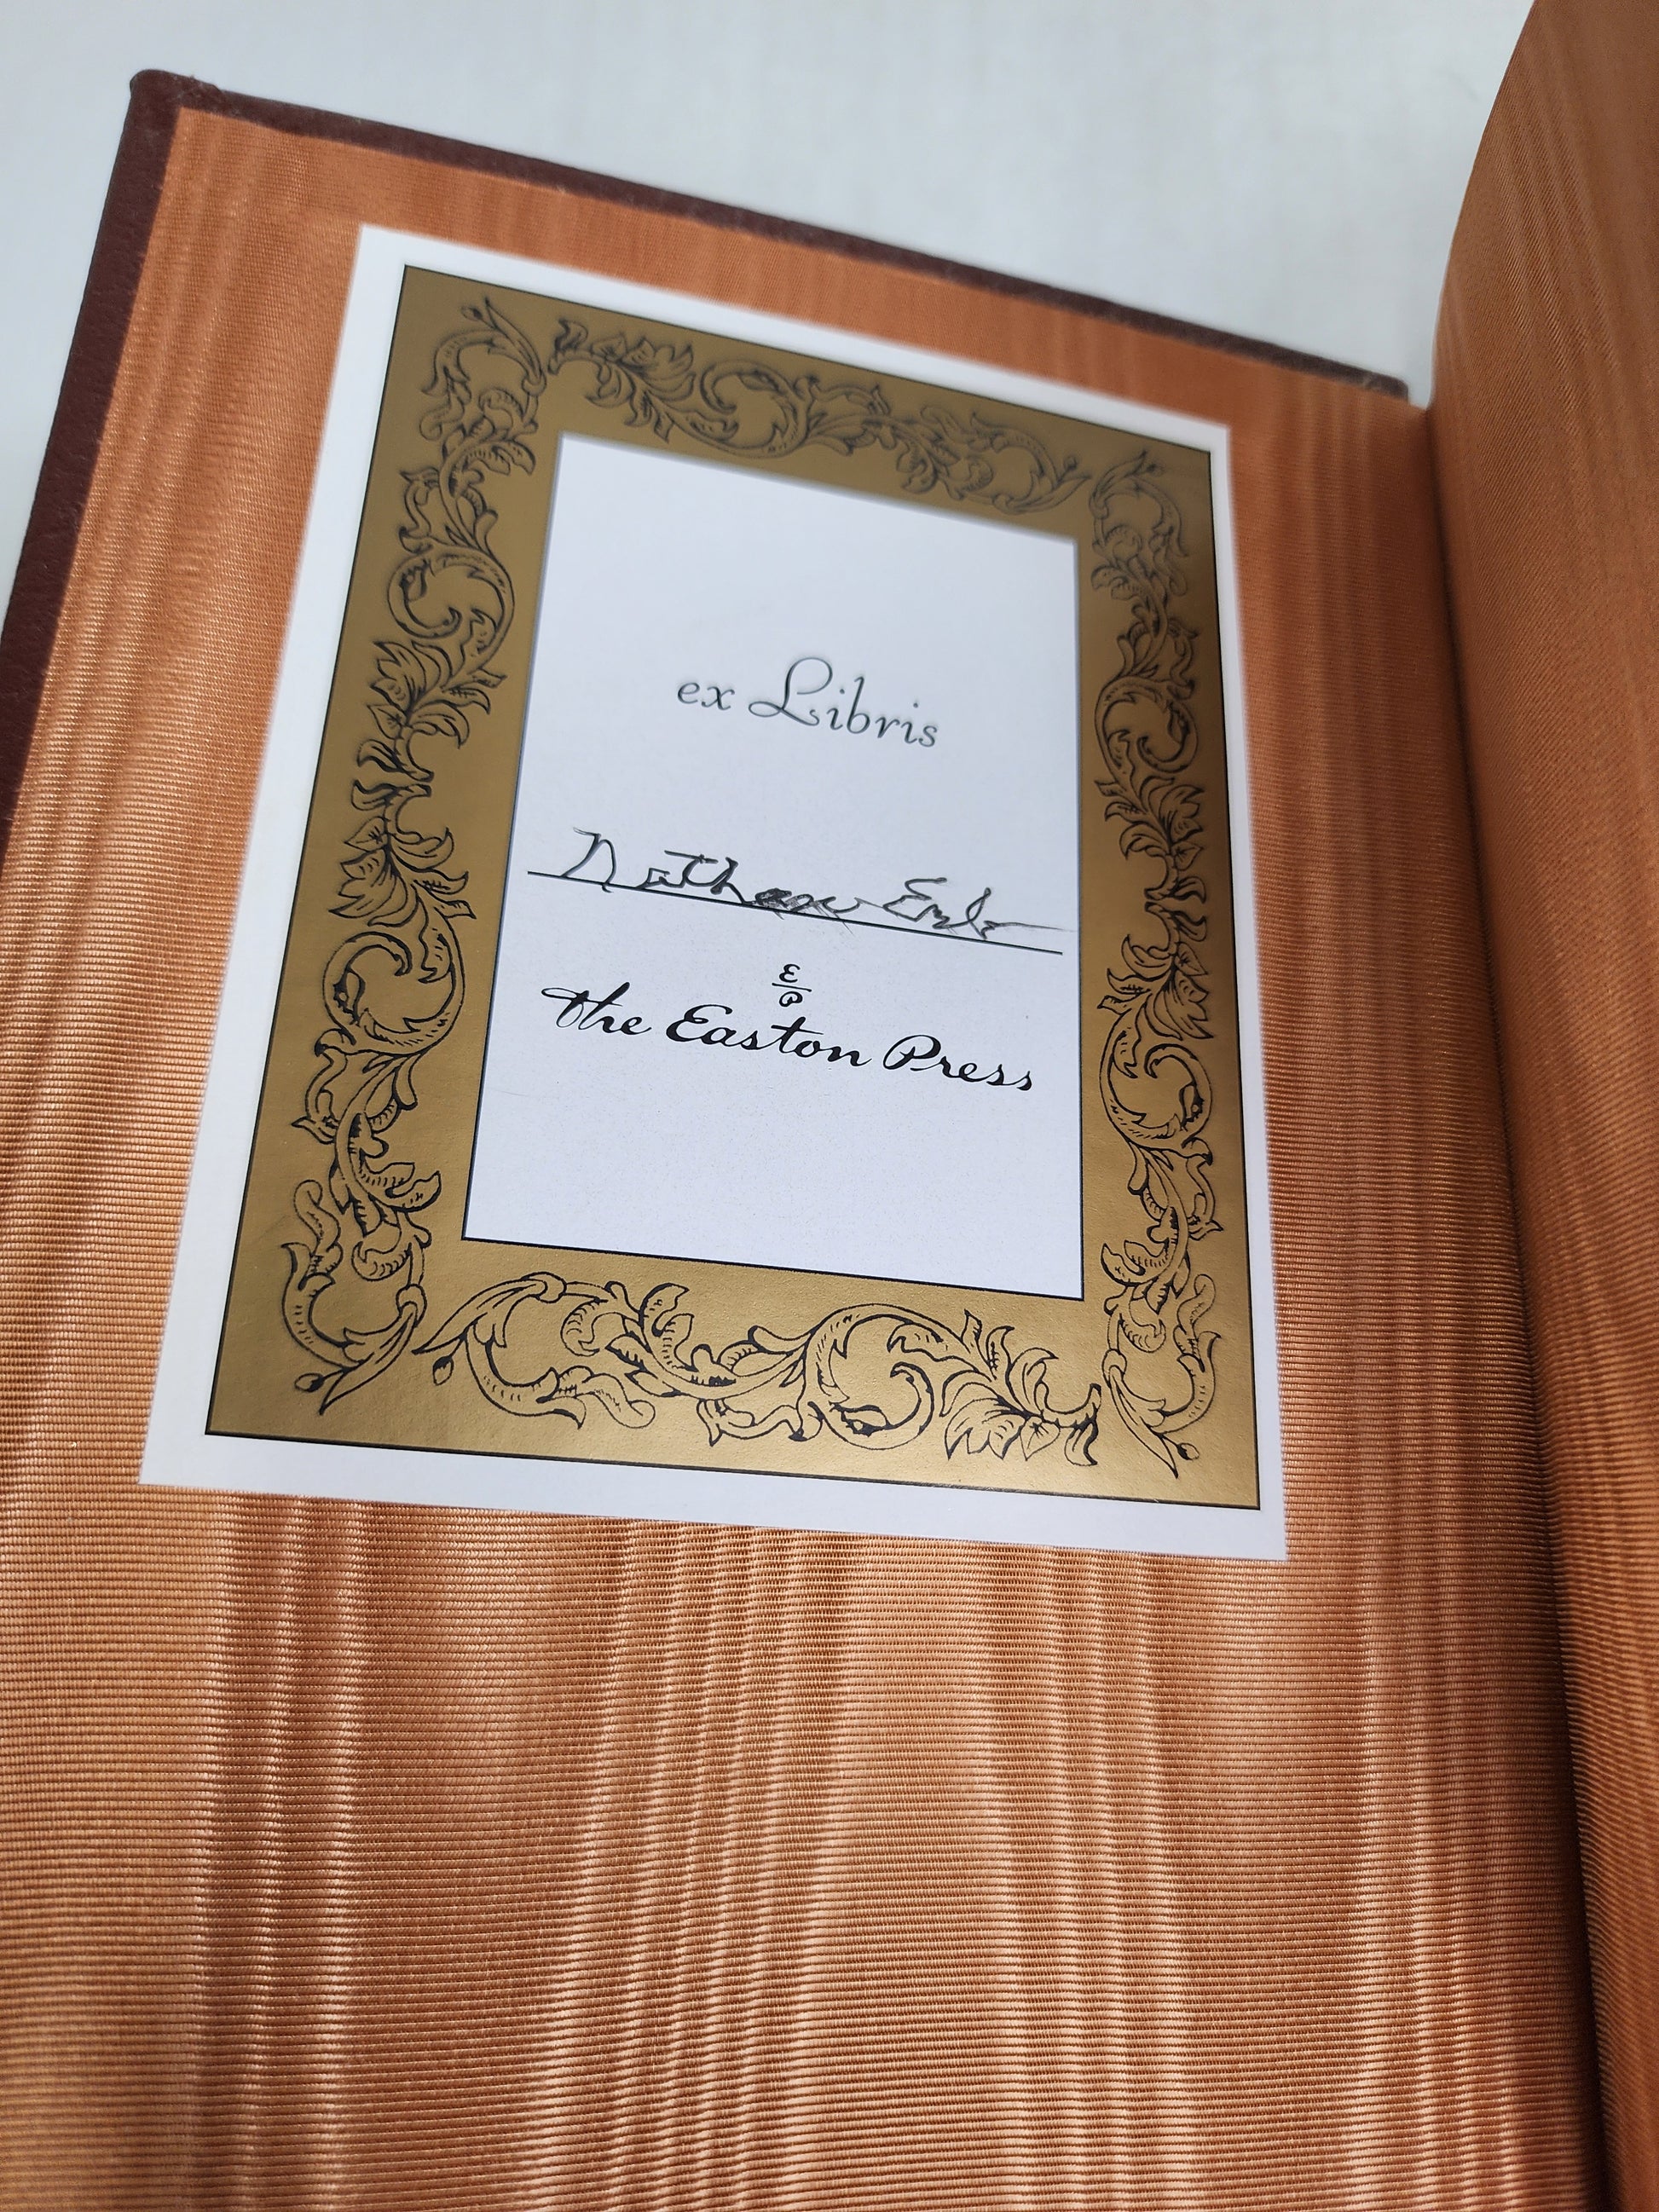 ex Libris
Nathan
E
P
The Easton Press